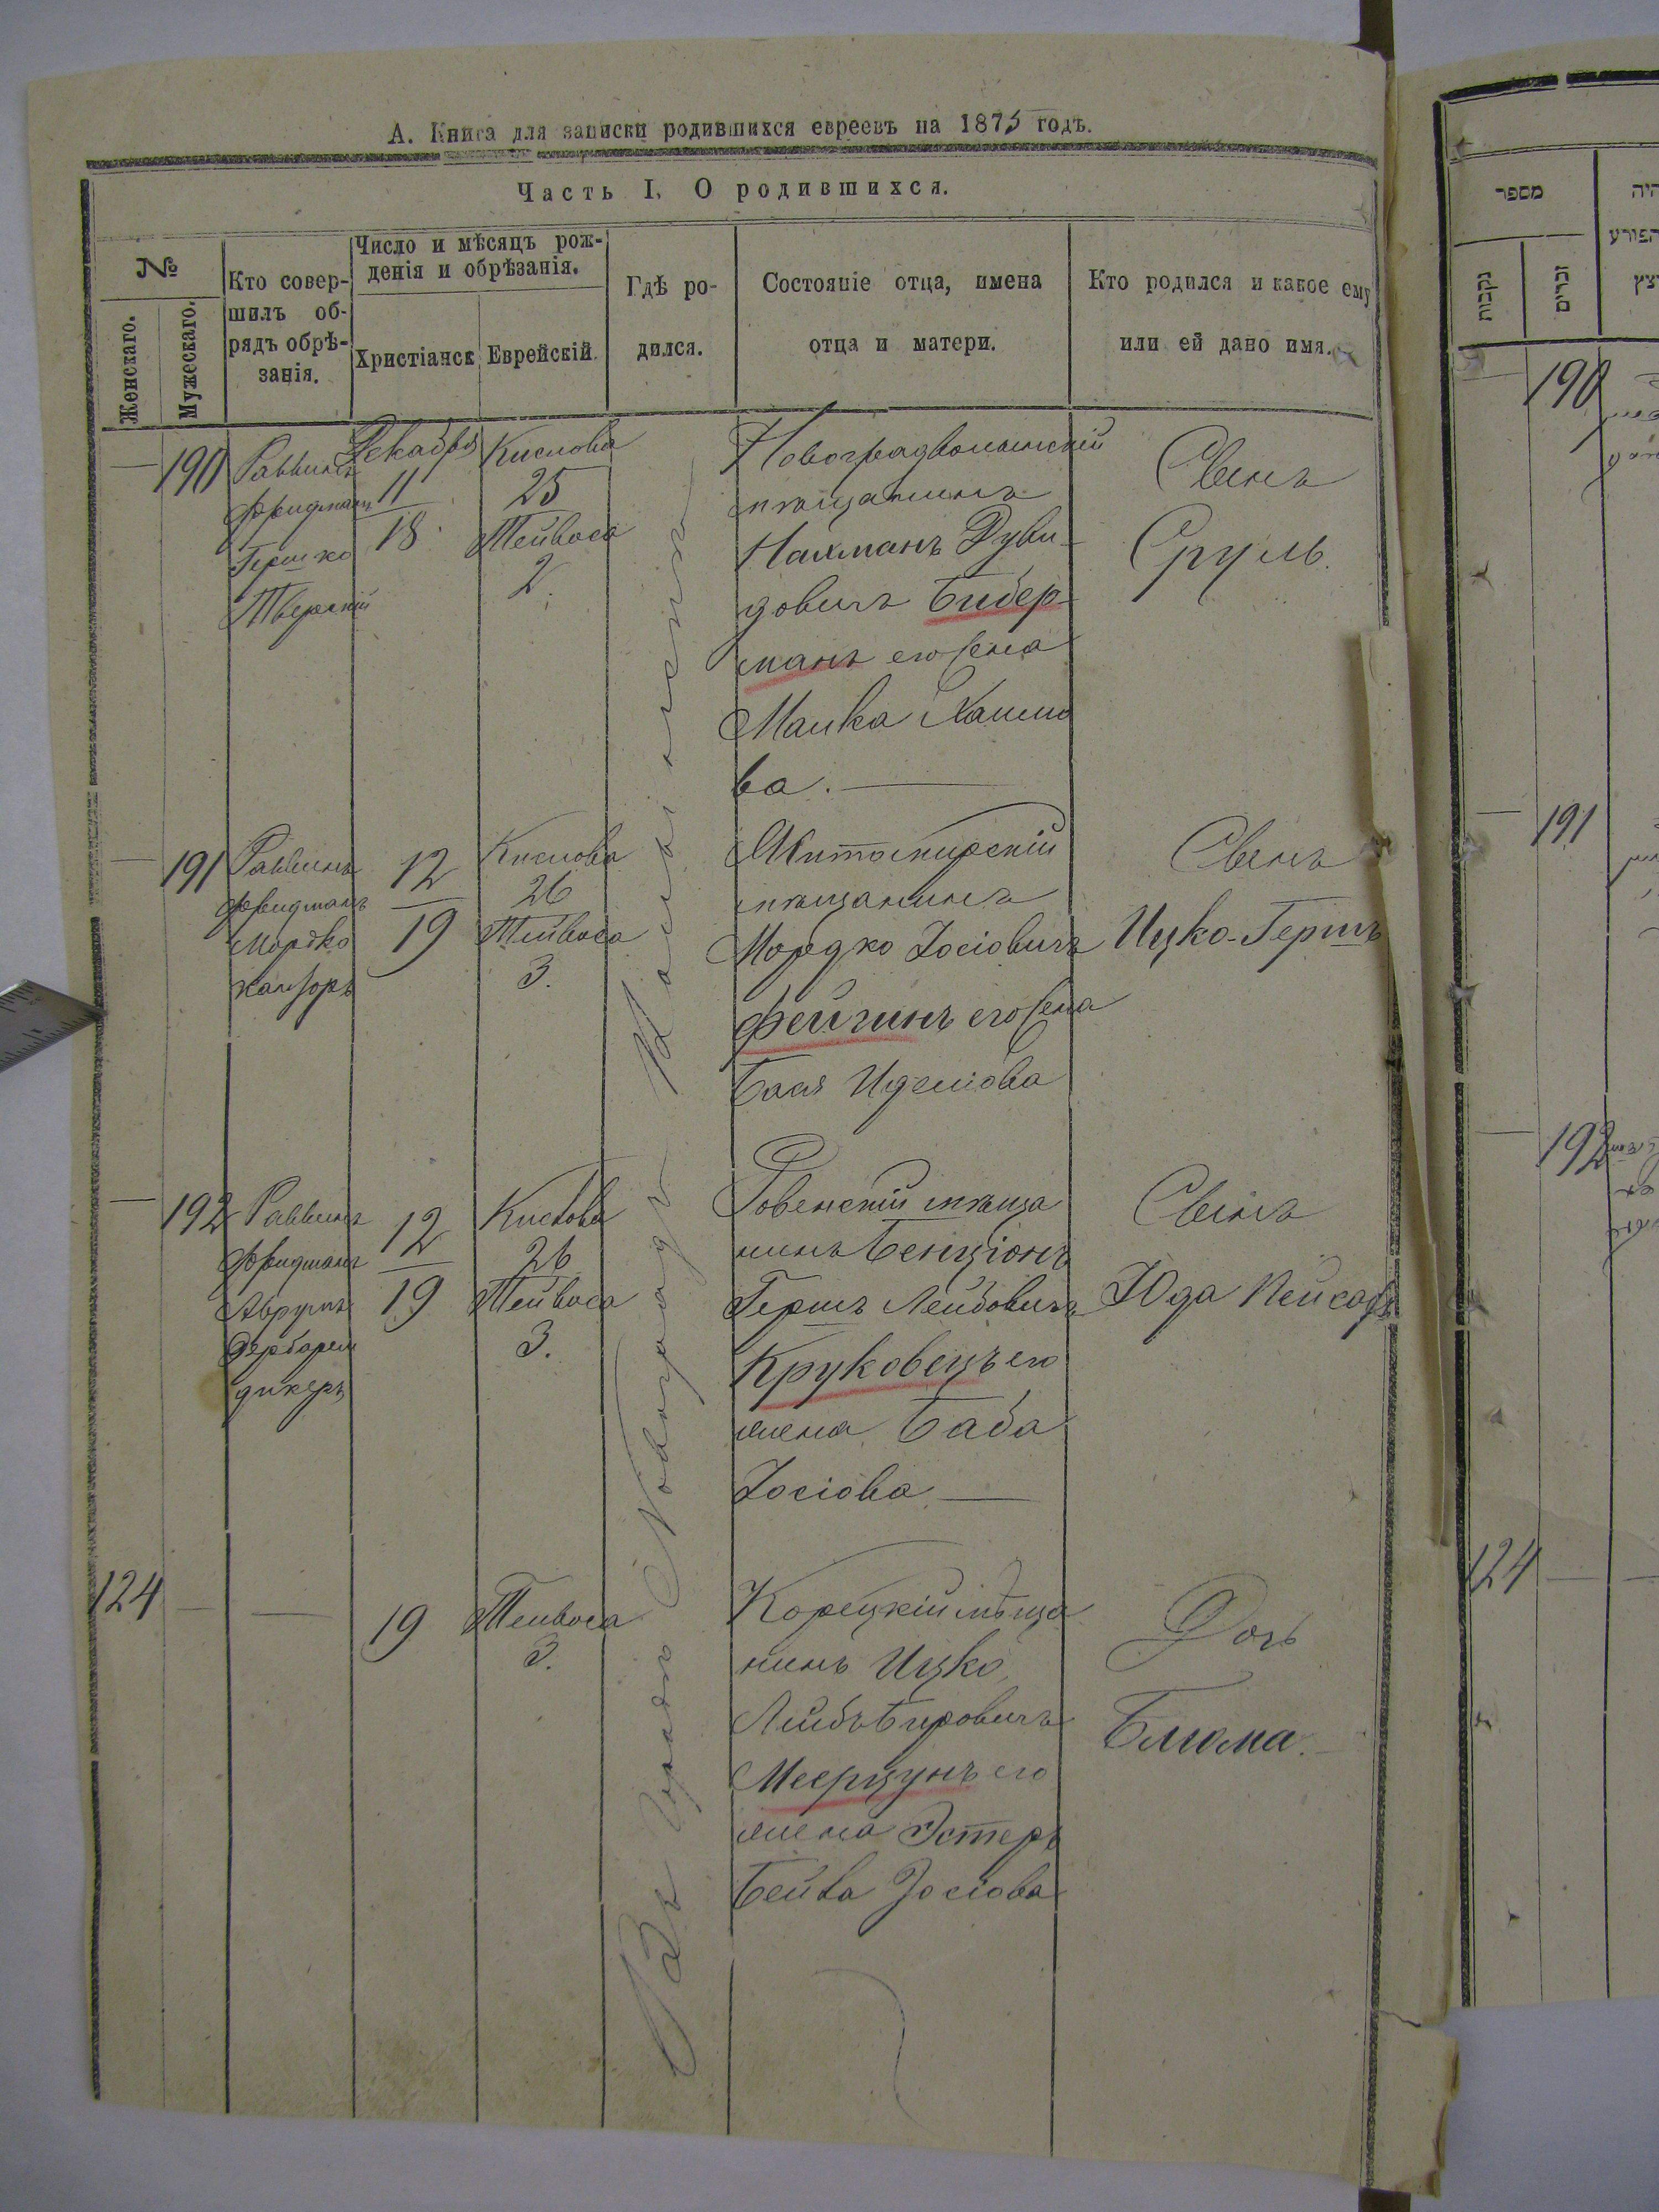 А. Книга для записки родившихся евреевъ на 1875 годъ.
Часть I. О родившихся.
№
Женскаго.
Мужескаго.
Кто совер-
шилъ об-
рядъ обрѣ-
занія.
Число и мѣсяцъ рож-
денія и обрѣзанія.
Христіанск
Еврейскій.
Гдѣ ро-
дился.
Состояніе отца, имена
отца и матери.
Кто родился и какое ему
или ей дано имя.
Въ городѣ Новоградъ
—
190
Раввинъ
Фридманъ
Гершко
Тверскій
Декабря
11
18
Кислова
25
Тейвеса
2.
Новоградволынскій
мѣщанинъ
Нахманъ Дуви-
довичъ Бибер-
манъ его жена
Малка Хаимо
ва.
Сынъ
Сруль.
—
191
Раввинъ
Фридманъ
Мордко
Канторъ
12
19
Кислова
26
Тейвеса
3.
Житомирскій
мѣщанинъ
Мордко Іосіовичъ
Фейгинъ его жена
Бася
Сынъ
Ицко-Гершъ
—
192
Раввинъ
Фридманъ
Аврумъ
Дербарем
дикеръ
12
19
Кислова
26
Тейвеса
3.
Ровенскій мѣща
нинъ Бенціонъ
Гершъ Лейбовичъ
Круковецъ его
жена Баба
Іосіова —
Сынъ
Юда Пейсахъ
124
—
—
19
Тейвеса
3.
Корецкій мѣща
нинъ Ицко
Лейбъ Беровичъ
Меерцунъ его
жена Эстеръ
Бейла Іосіова
Дочь
Блюма.
מספר
נקבות
זכרים
היה
הפורע
— 190
— 191
— 192
124 —